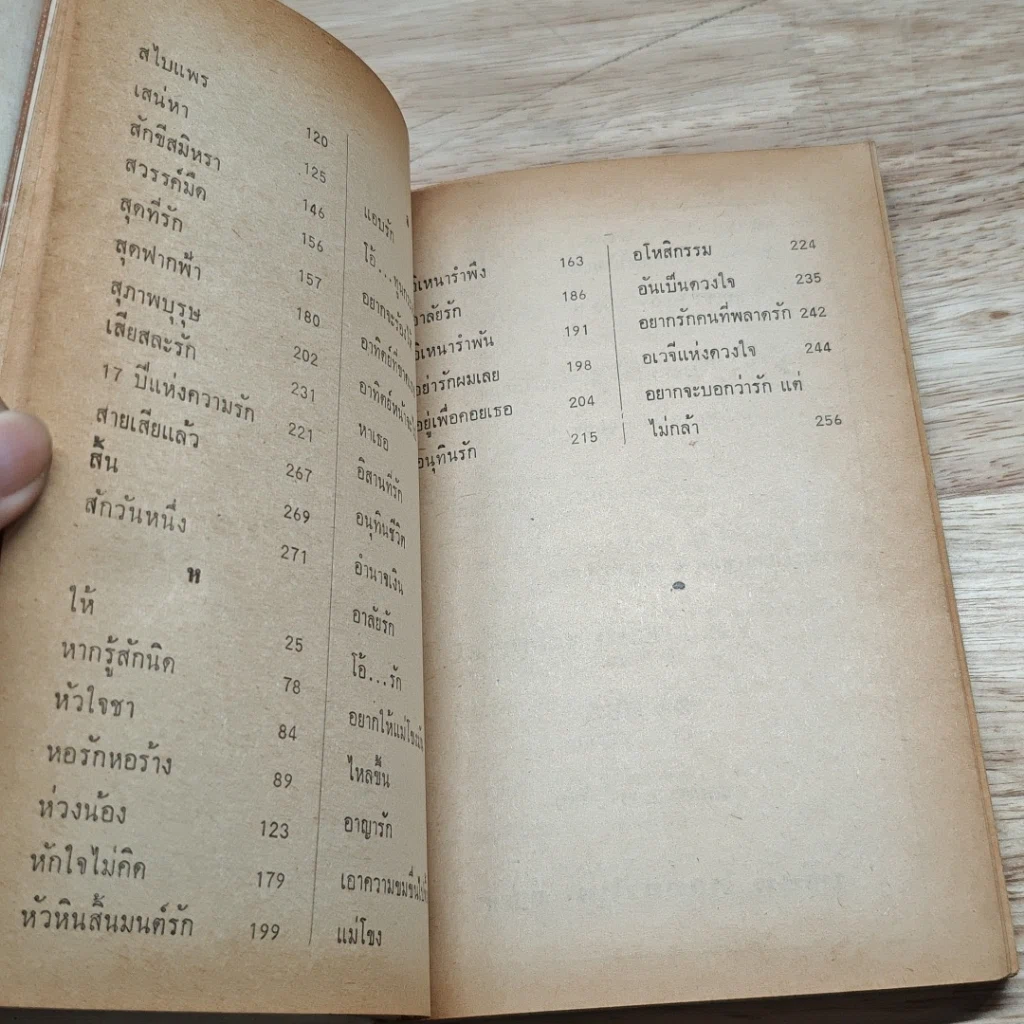 สไบแพร 120
เสน่หา 125
สักขีสมิหรา 146
สวรรค์มืด 156
สุดที่รัก 157
สุดฟากฟ้า 180
สุภาพบุรุษ 202
เสียสละรัก 231
17 ปีแห่งความรัก 221
สายเสียแล้ว 267
สิ้น 269
สักวันหนึ่ง 271
ห
ให้ 25
หากรู้สักนิด 78
หัวใจชา 84
หอรักหอร้าง 89
ห่วงน้อง 123
หักใจไม่คิด 179
หัวหินสิ้นมนต์รัก 199
แอบรัก
โอ้...
อยากจะร้องไห้
หาเธอ
อิสานที่รัก
อนุทินชีวิต
อำนาจเงิน
อาลัยรัก
โอ้...รัก
ไหลขึ้น
อาญารัก
แม่โขง
163
อาลัยรัก 186
191
อย่ารักผมเลย 198
อยู่เพื่อคอยเธอ 204
อนุทินรัก 215
อโหสิกรรม 224
อันเป็นดวงใจ 235
อยากรักคนที่พลาดรัก 242
อเวจีแห่งดวงใจ 244
อยากจะบอกว่ารัก แต่
ไม่กล้า 256